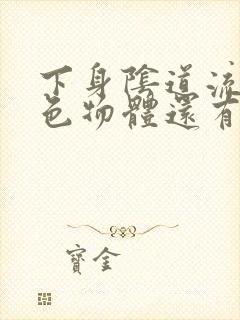 下身陰道流
色物體還有
寶金